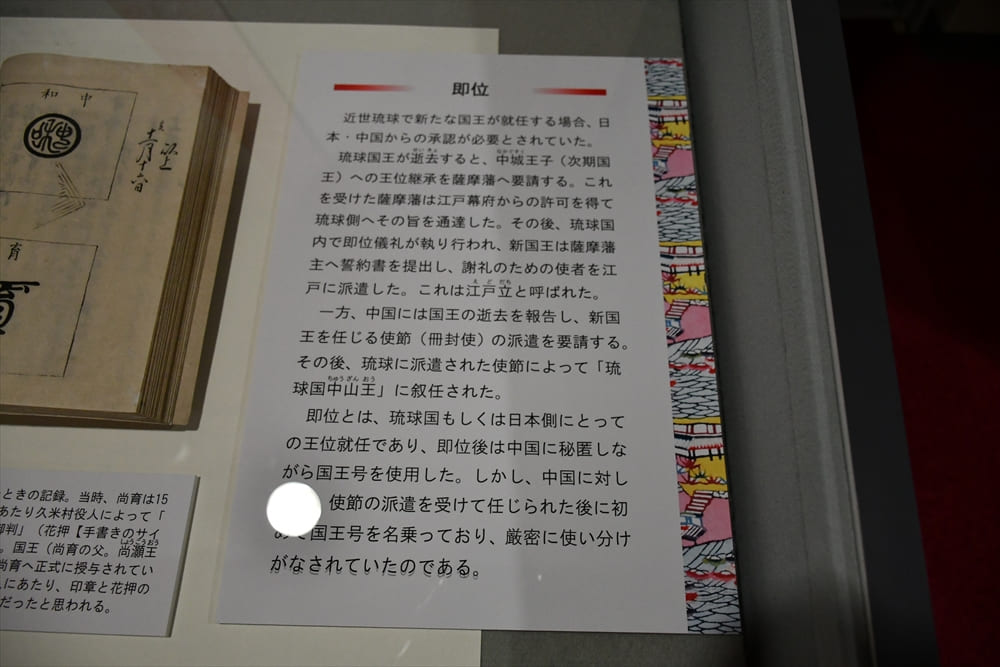 即位
近世琉球で新たな国王が就任する場合、日
本・中国からの承認が必要とされていた。
琉球国王が逝去すると、中城王子（次期国
王）への王位継承を薩摩藩へ要請する。これ
を受けた薩摩藩は江戸幕府からの許可を得て
琉球側へその旨を通達した。その後、琉球国
内で即位儀礼が執り行われ、新国王は薩摩藩
主へ誓約書を提出し、謝礼のための使者を江
戸に派遣した。これは江戸立と呼ばれた。
一方、中国には国王の逝去を報告し、新国
王を任じる使節（冊封使）の派遣を要請する。
その後、琉球に派遣された使節によって「琉
球国中山王」に叙任された。
即位とは、琉球国もしくは日本側にとって
の王位就任であり、即位後は中国に秘匿しな
がら国王号を使用した。しかし、中国に対し
使節の派遣を受けて任じられた後に初
めて国王号を名乗っており、厳密に使い分け
がなされていたのである。
中和
十一月十六日
育
ときの記録。当時、尚育は15
あたり久米村役人によって「
御判」（花押【手書きのサイ
。国王（尚育の父。尚灝王
尚育へ正式に授与されてい
にあたり、印章と花押の
だったと思われる。